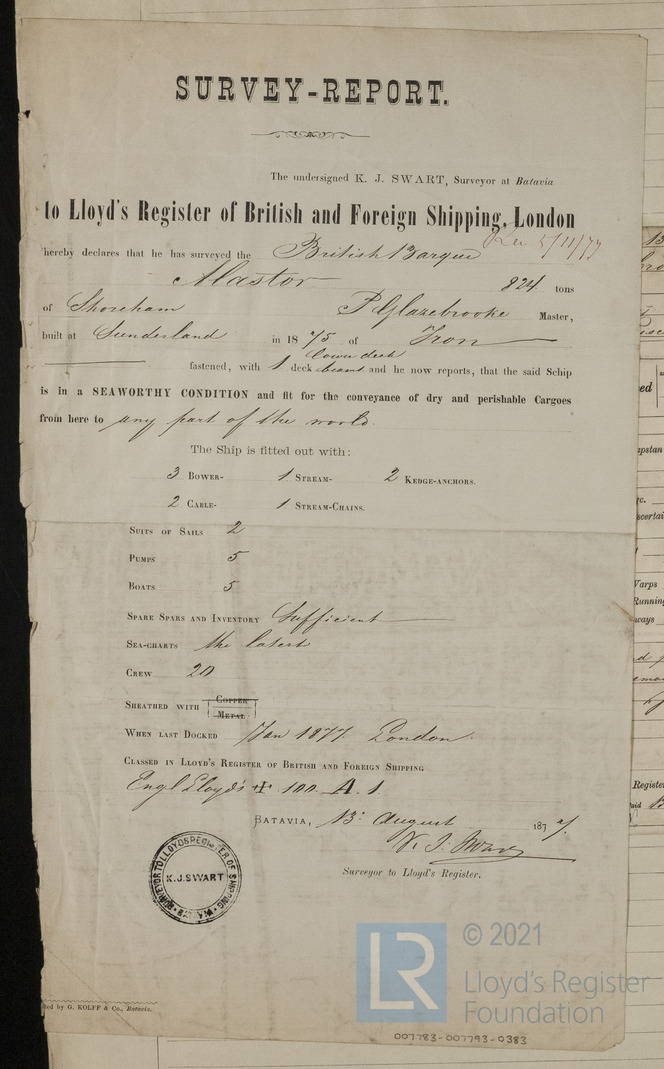 SURVEY-REPORT.
The undersigned K. J. SWART, Surveyor at Batavia
to Lloyd's Register of British and Foreign Shipping, London
Rec 5/11/77
hereby declares that he has surveyed the British Barque
Alastor 824 tons
of Shoreham P Glazebrooke Master,
built at Sunderland in 1875 of Iron
lower deck
fastened, with 1 deck beams and he now reports, that the said Schip
is in a SEAWORTHY CONDITION and fit for the conveyance of dry and perishable Cargoes
from here to any part of the world.
The Ship is fitted out with:
3 BOWER- 1 STREAM- 2 KEDGE-ANCHORS.
2 CABLE- 1 STREAM-CHAINS.
SUITS OF SAILS 2
PUMPS 5
BOATS 5
SPARE SPARS AND INVENTORY Sufficient
SEA-CHARTS the latest
CREW 20
SHEATHED WITH COPPER
METAL
WHEN LAST DOCKED Jan 1877 London.
CLASSED IN LLOYD'S REGISTER OF BRITISH AND FOREIGN SHIPPING
Engl Lloyd's ✠ 100 A. 1.
BATAVIA, 13: August 1877.
K. J. Swart
Surveyor to Lloyd's Register.
SURVEYOR TO LLOYDSREGISTER OF SHIPPING
K. J. SWART
ted by G. KOLFF & Co., Batavia.
LR © 2021
Lloyd's Register
Foundation
007783-007793-0383
ed
apstan
c.
scertai
Warps
Running
ways
Register
aid